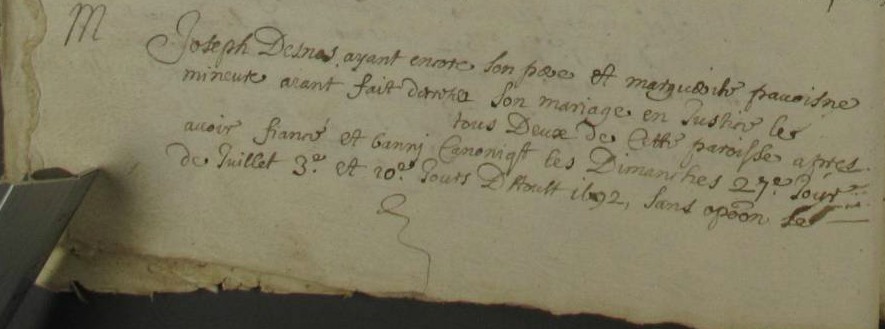 M
Joseph Desnos ayant encore son pere et marguerite francoisne
mineure aiant fait decreter son mariage en Justice les
tous Deux de Cette paroisse apres
auoir fiancé et banni Canoniqt les Dimanches 27.e Jour
de Juillet 3.e et 10.e Jours D'Aoust 1692, sans opoõn